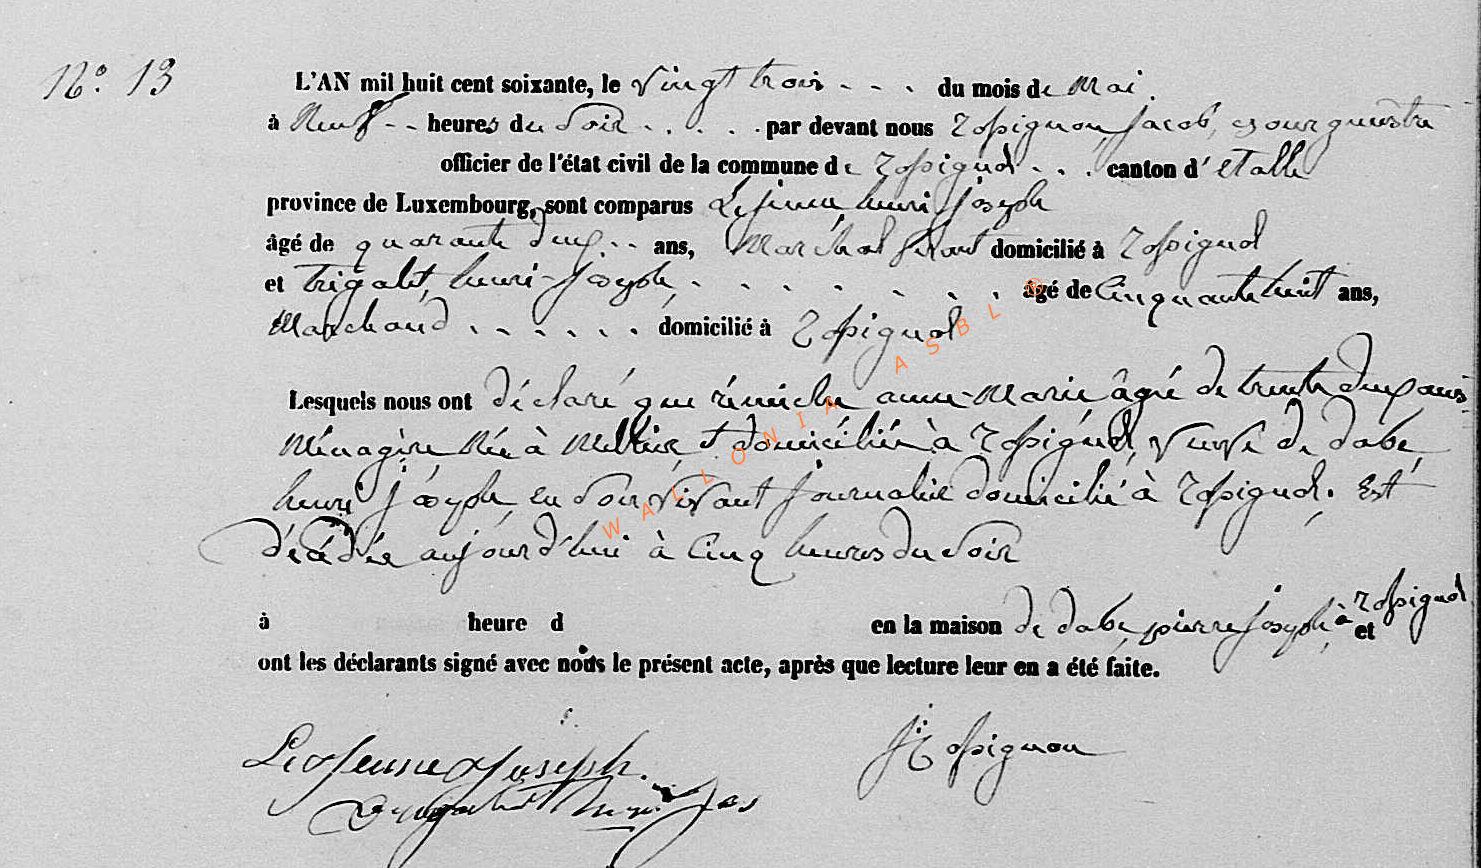 N°. 13
L'AN mil huit cent soixante, le vingt trois - - . du mois de Mai.
à Neuf - - heures du Soir . . . . . par devant nous Rossignon, Jacob, Bourguemestre
officier de l'état civil de la commune de Rossignol . . . canton d'Etalle
province de Luxembourg, sont comparus Lejeune, henri Joseph
âgé de quarante deux . . ans, Maréchal ferant domicilié à Rossignol
et Trigalet, henri-Joseph, . . . . . . . . âgé de Cinquante huit ans,
Marchand . . . . . . domicilié à Rossignol
Lesquels nous ont déclaré que anne-Marie âgée de trente deux ans
Ménagère Née à Mellier et domiciliée à Rossignol, veuve de dabe
henri Joseph en Son vivant Journalier domicilié à Rossignol. Est
décédée aujourd'hui à Cinq heures du Soir
à heure d en la maison de dabe, pierre Joseph, à Rossignol et
ont les déclarants signé avec nous le présent acte, après que lecture leur en a été faite.
LeJeune Joseph. J Rossignon
Trigalet henri Jos
WALLONIA ASBL ©